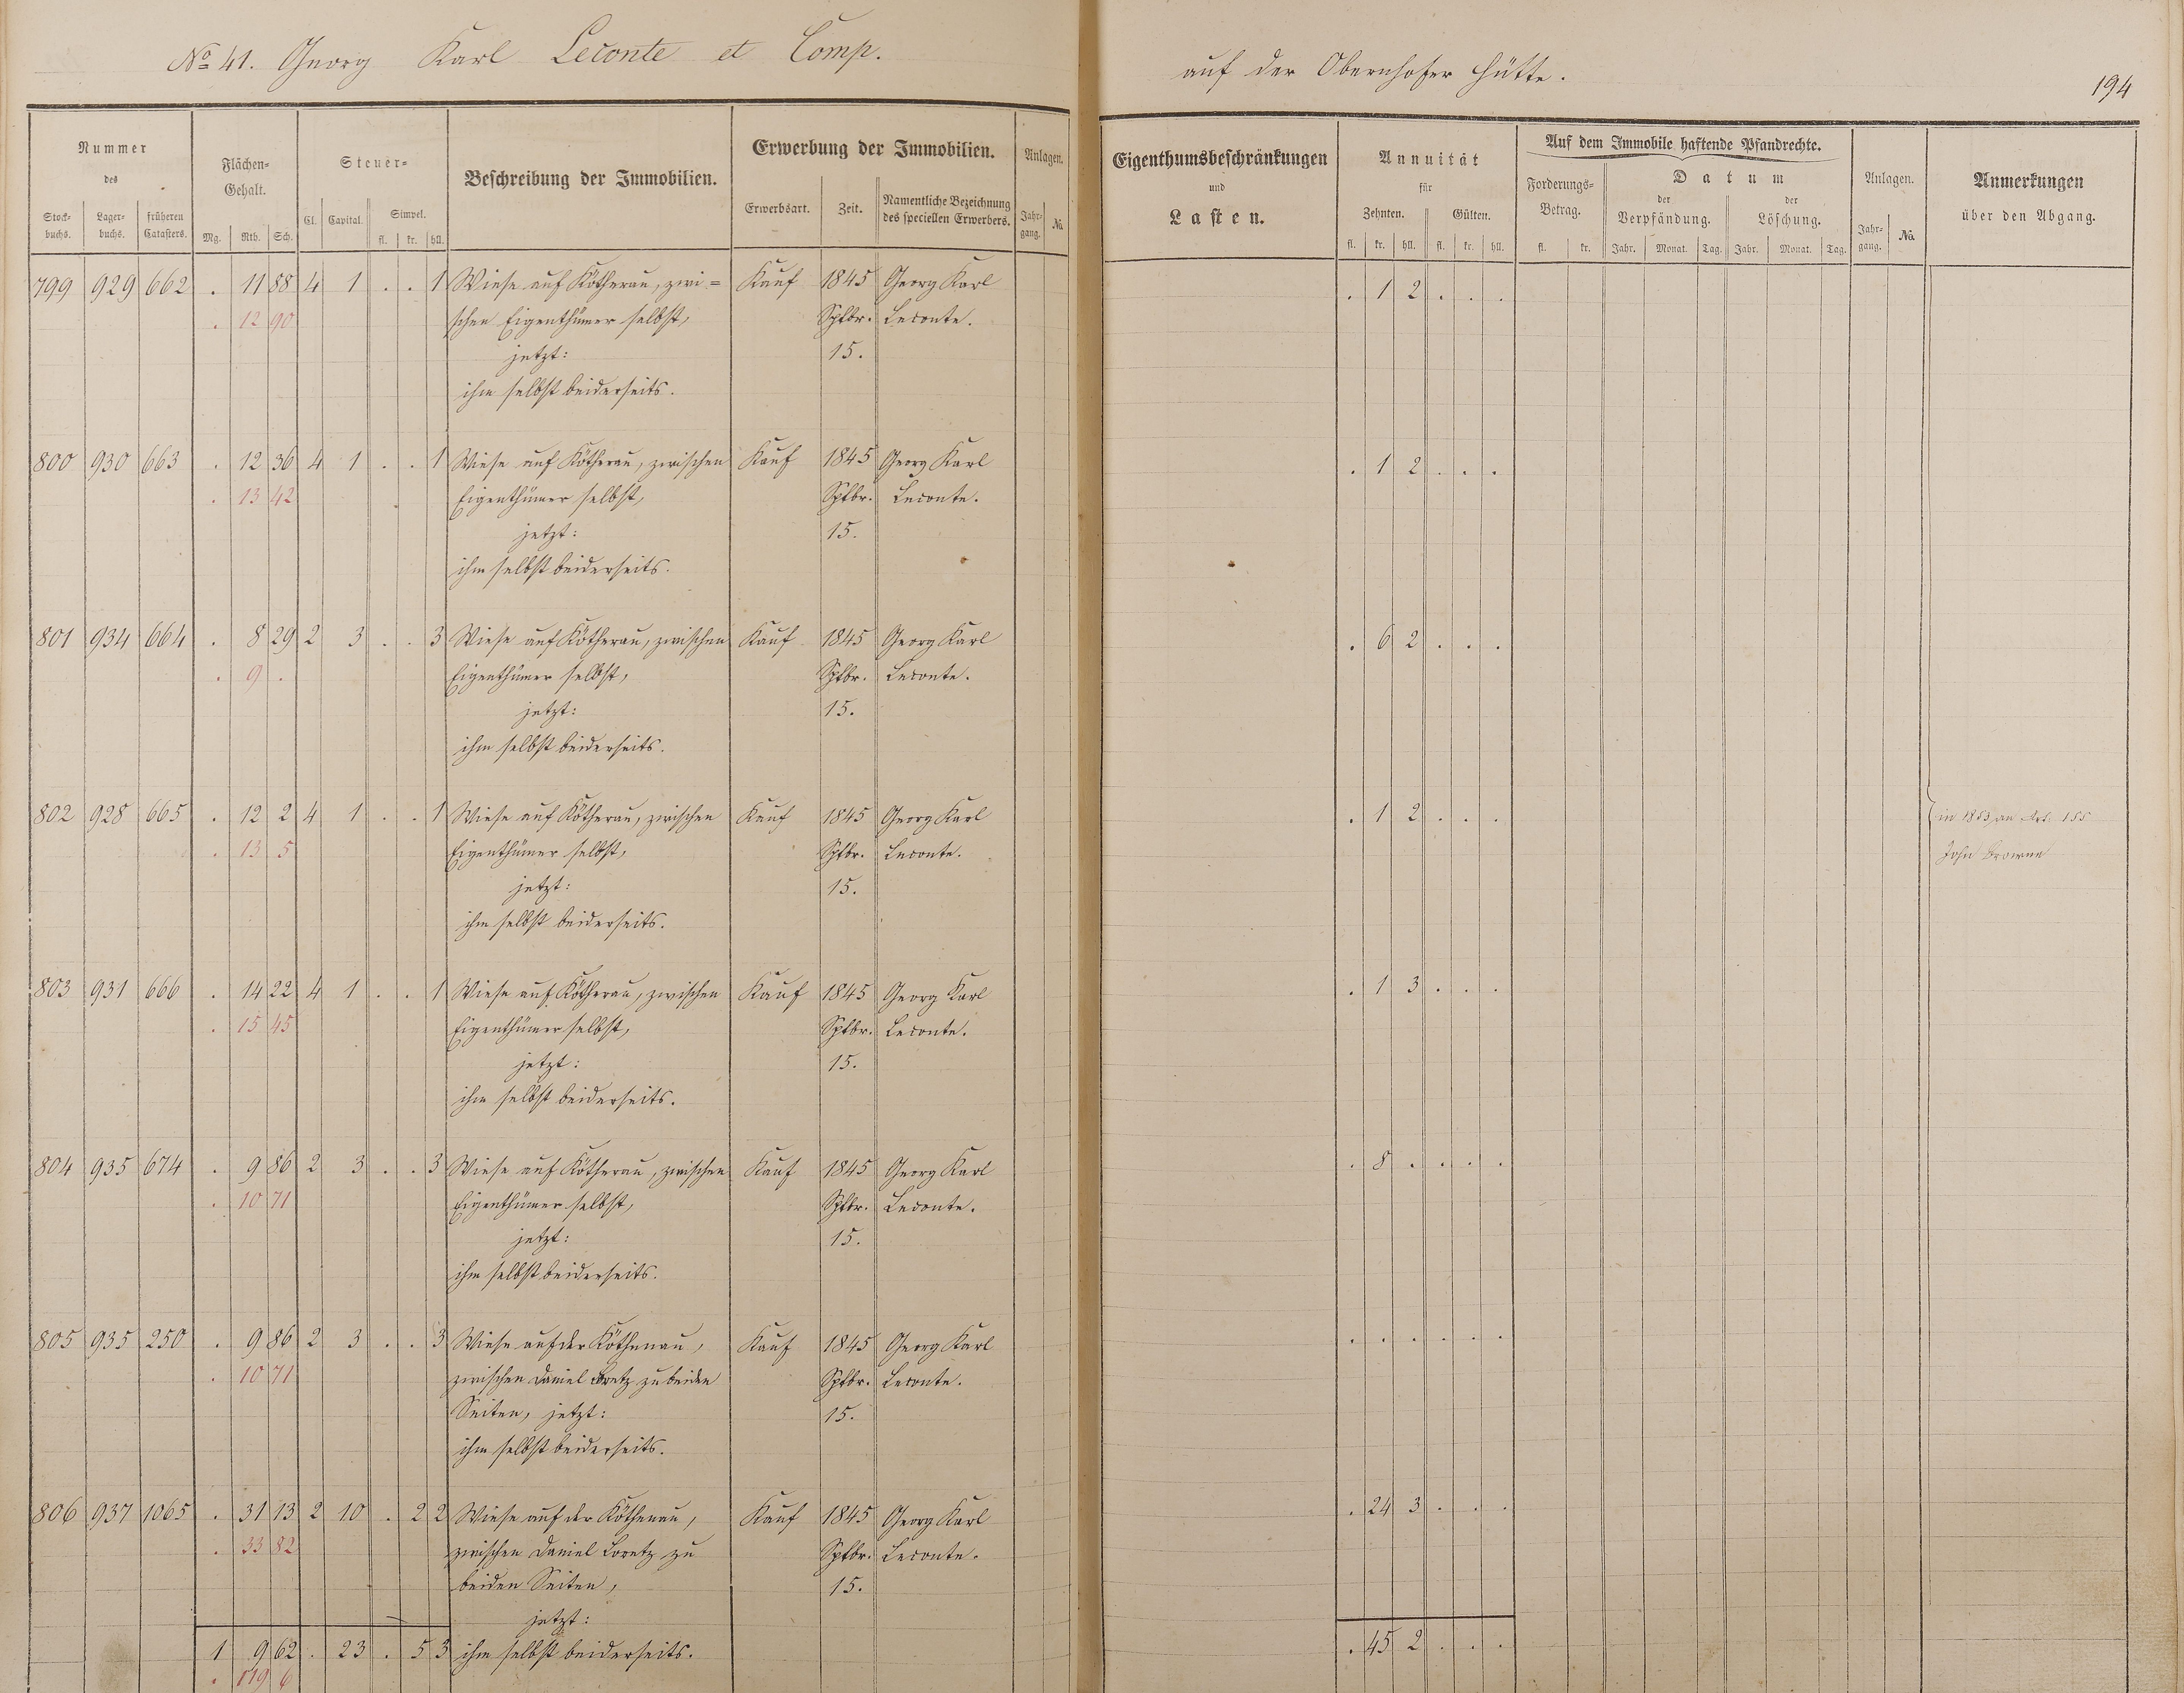 No 41. Georg Karl Leconte et Comp.
auf der Obernhofer Hütte.
194
Nummer des
Stockbuchs. Lagerbuchs. früheren Catasters.
Flächen-Gehalt.
Mg. Rth. Sch.
Steuer-
Cl. Capital. Simpel.
fl. kr. hll.
Beschreibung der Immobilien.
Erwerbung der Immobilien.
Erwerbsart. Zeit. Namentliche Bezeichnung des speciellen Erwerbers.
Anlagen.
Jahrgang. No.
Eigenthumsbeschränkungen und Lasten.
Annuität für
Zehnten. Gülten.
fl. kr. hll. fl. kr. hll.
Auf dem Immobile haftende Pfandrechte.
Forderungs-Betrag.
fl. kr.
Datum
der Verpfändung. der Löschung.
Jahr. Monat. Tag. Jahr. Monat. Tag.
Anlagen.
Jahrgang. No.
Anmerkungen über den Abgang.
799 929 662 . 11 88 4 1 . . 1 Wiese auf Kötherau, zwi= Kauf 1845 Georg Karl . 1 2 . . .
. 12 90 schen Eigenthümer selbst, Sptbr. Leconte.
jetzt: 15.
ihm selbst beiderseits.
800 930 663 . 12 36 4 1 . . 1 Wiese auf Kötherau, zwischen Kauf 1845 Georg Karl . 1 2 . . .
. 13 42 Eigenthümer selbst, Sptbr. Leconte.
jetzt: 15.
ihm selbst beiderseits.
801 934 664 . 8 29 2 3 . . 3 Wiese auf Kötherau, zwischen Kauf 1845 Georg Karl . 6 2 . . .
. 9 . Eigenthümer selbst, Sptbr. Leconte.
jetzt: 15.
ihm selbst beiderseits.
802 928 665 . 12 2 4 1 . . 1 Wiese auf Kötherau, zwischen Kauf 1845 Georg Karl . 1 2 . . . in 1853 an Art. 155
. 13 5 Eigenthümer selbst, Sptbr. Leconte. John Browne
jetzt: 15.
ihm selbst beiderseits.
803 931 666 . 14 22 4 1 . . 1 Wiese auf Kötherau, zwischen Kauf 1845 Georg Karl . 1 3 . . .
. 15 45 Eigenthümer selbst, Sptbr. Leconte.
jetzt: 15.
ihm selbst beiderseits.
804 935 674 . 9 86 2 3 . . 3 Wiese auf Kötherau, zwischen Kauf 1845 Georg Karl . 8 . . . .
. 10 71 Eigenthümer selbst, Sptbr. Leconte.
jetzt: 15.
ihm selbst beiderseits.
805 935 250 . 9 86 2 3 . . 3 Wiese auf der Köthenau, Kauf 1845 Georg Karl . . . . . .
. 10 71 zwischen Daniel Loretz zu beiden Sptbr. Leconte.
Seiten, jetzt: 15.
ihm selbst beiderseits.
806 937 1065 . 31 13 2 10 . 2 2 Wiese auf der Köthenau, Kauf 1845 Georg Karl . 24 3 . . .
. 33 82 zwischen Daniel Loretz zu Sptbr. Leconte.
beiden Seiten, 15.
jetzt:
1 9 62 . 23 . 5 3 ihm selbst beiderseits. . 45 2 . . .
. 119 6